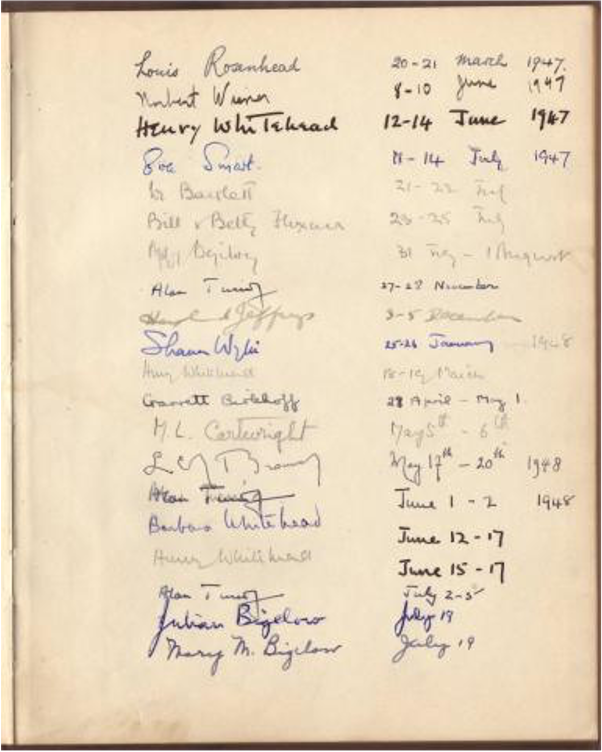 Louis Rosenhead 20-21 March 1947.
Norbert Wiener 8-10 June 1947
Henry Whitehead 12-14 June 1947
Eva Smart. 11-14 July 1947
Bartlett 21-22 July
Bill & Betty 23-25 July
31 July - 1 August
Alan Turing 27-28 November
Harold Jeffreys 3-5 December
Shaun Wylie 25-26 January 1948
Henry Whitehead 18-19 March
Garrett Birkhoff 28 April - May 1.
M.L. Cartwright May 5th - 6th
May 17th - 20th 1948
Alan Turing June 1 - 2 1948
Barbara Whitehead June 12-17
Henry Whitehead June 15-17
Alan Turing July 2-5
Julian Bigelow July 19
Mary M. Bigelow July 19